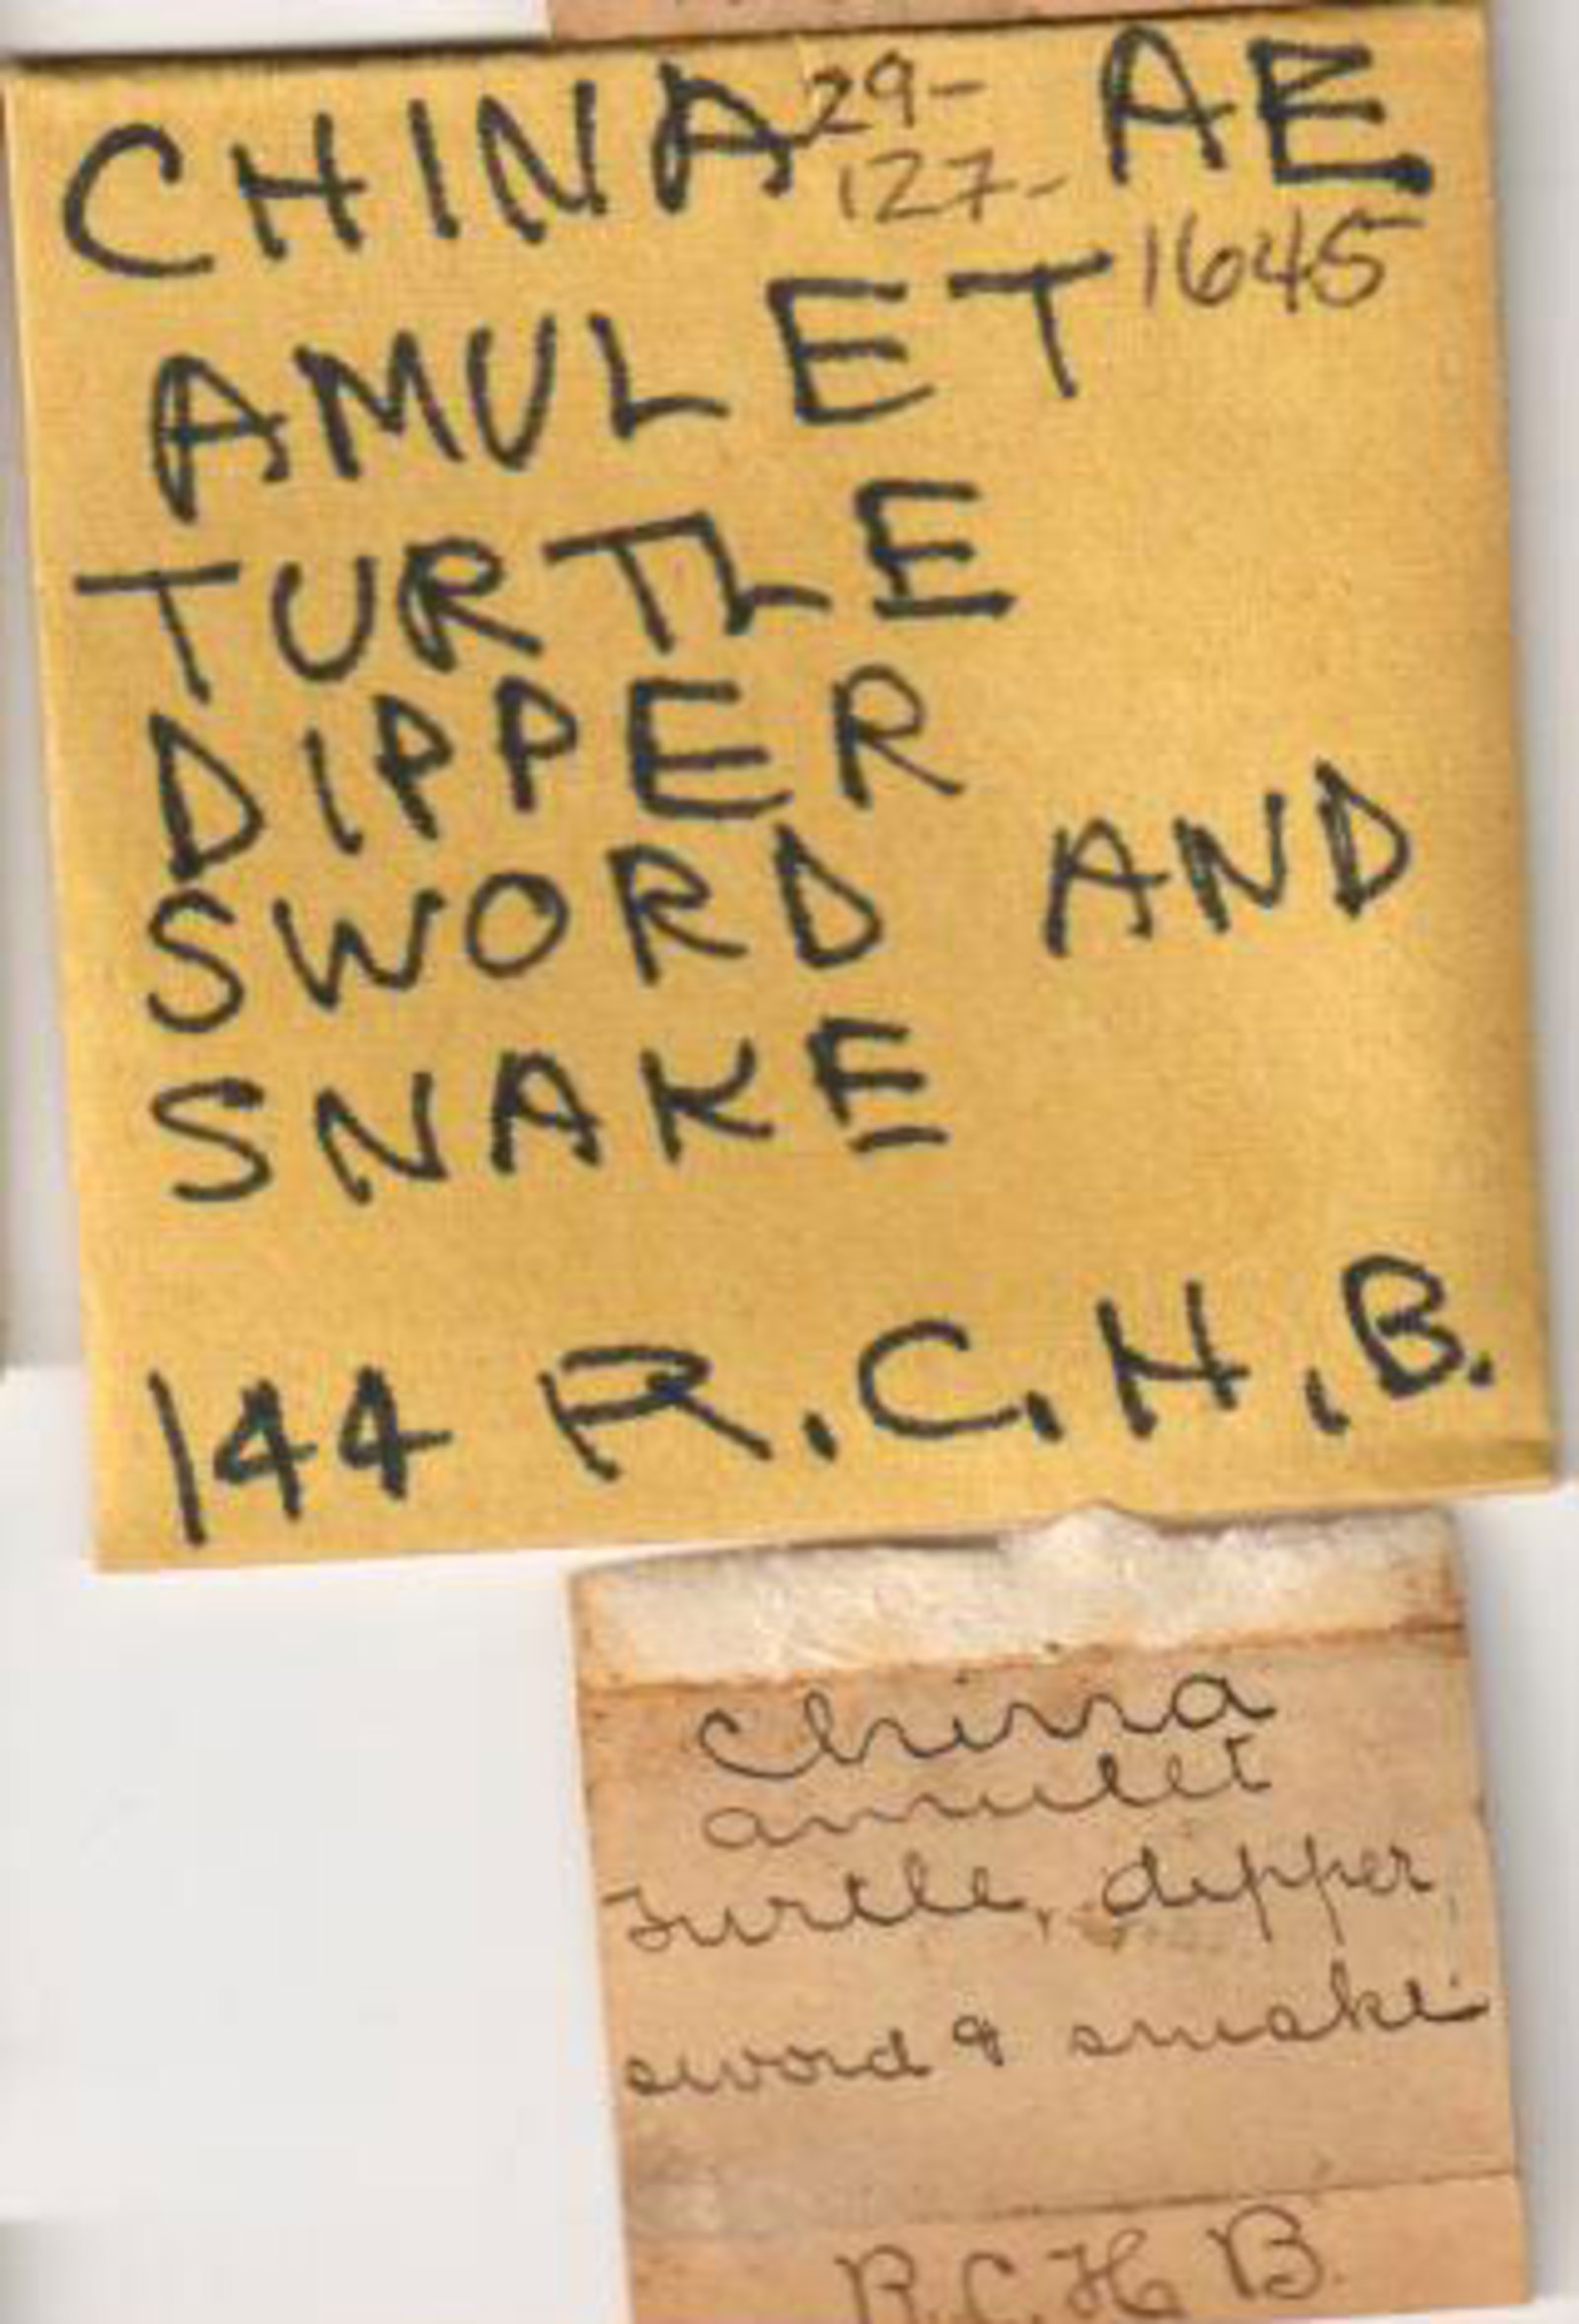 CHINA 29- AE
127-
1645
AMULET
TURTLE
DIPPER
SWORD AND
SNAKE
144 R.C.H.B.
China
amulet
Turtle, dipper,
sword & snake
R.C.H B.